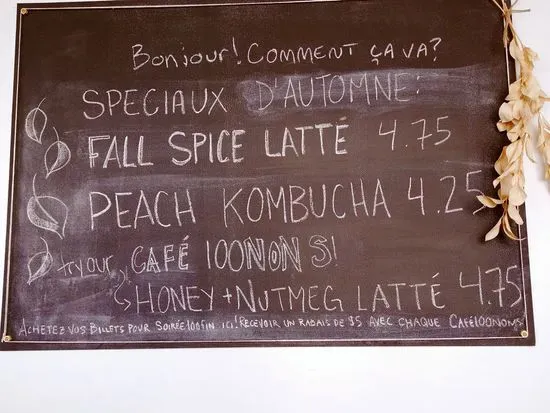 Bonjour! Comment ça va?
SPECIAUX D'AUTOMNE:
FALL SPICE LATTÉ 4.75
PEACH KOMBUCHA 4.25
try our CAFÉ 100NONS!
HONEY + NUTMEG LATTÉ 4.75
ACHETEZ VOS BILLETS POUR SOIRÉE 100FIN ICI! RECEVOIR UN RABAIS DE $5 AVEC CHAQUE CAFÉ 100NONS